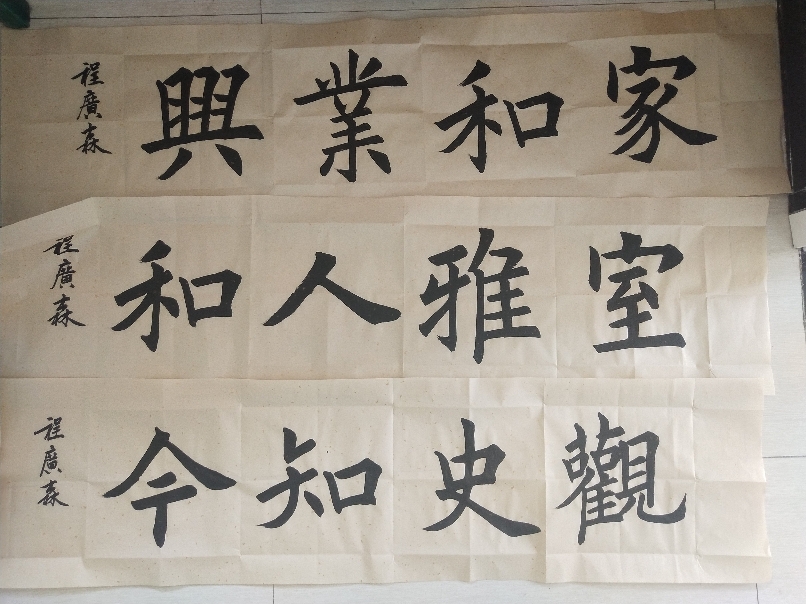 家和業興
程廣森
室雅人和
程廣森
觀史知今
程廣森